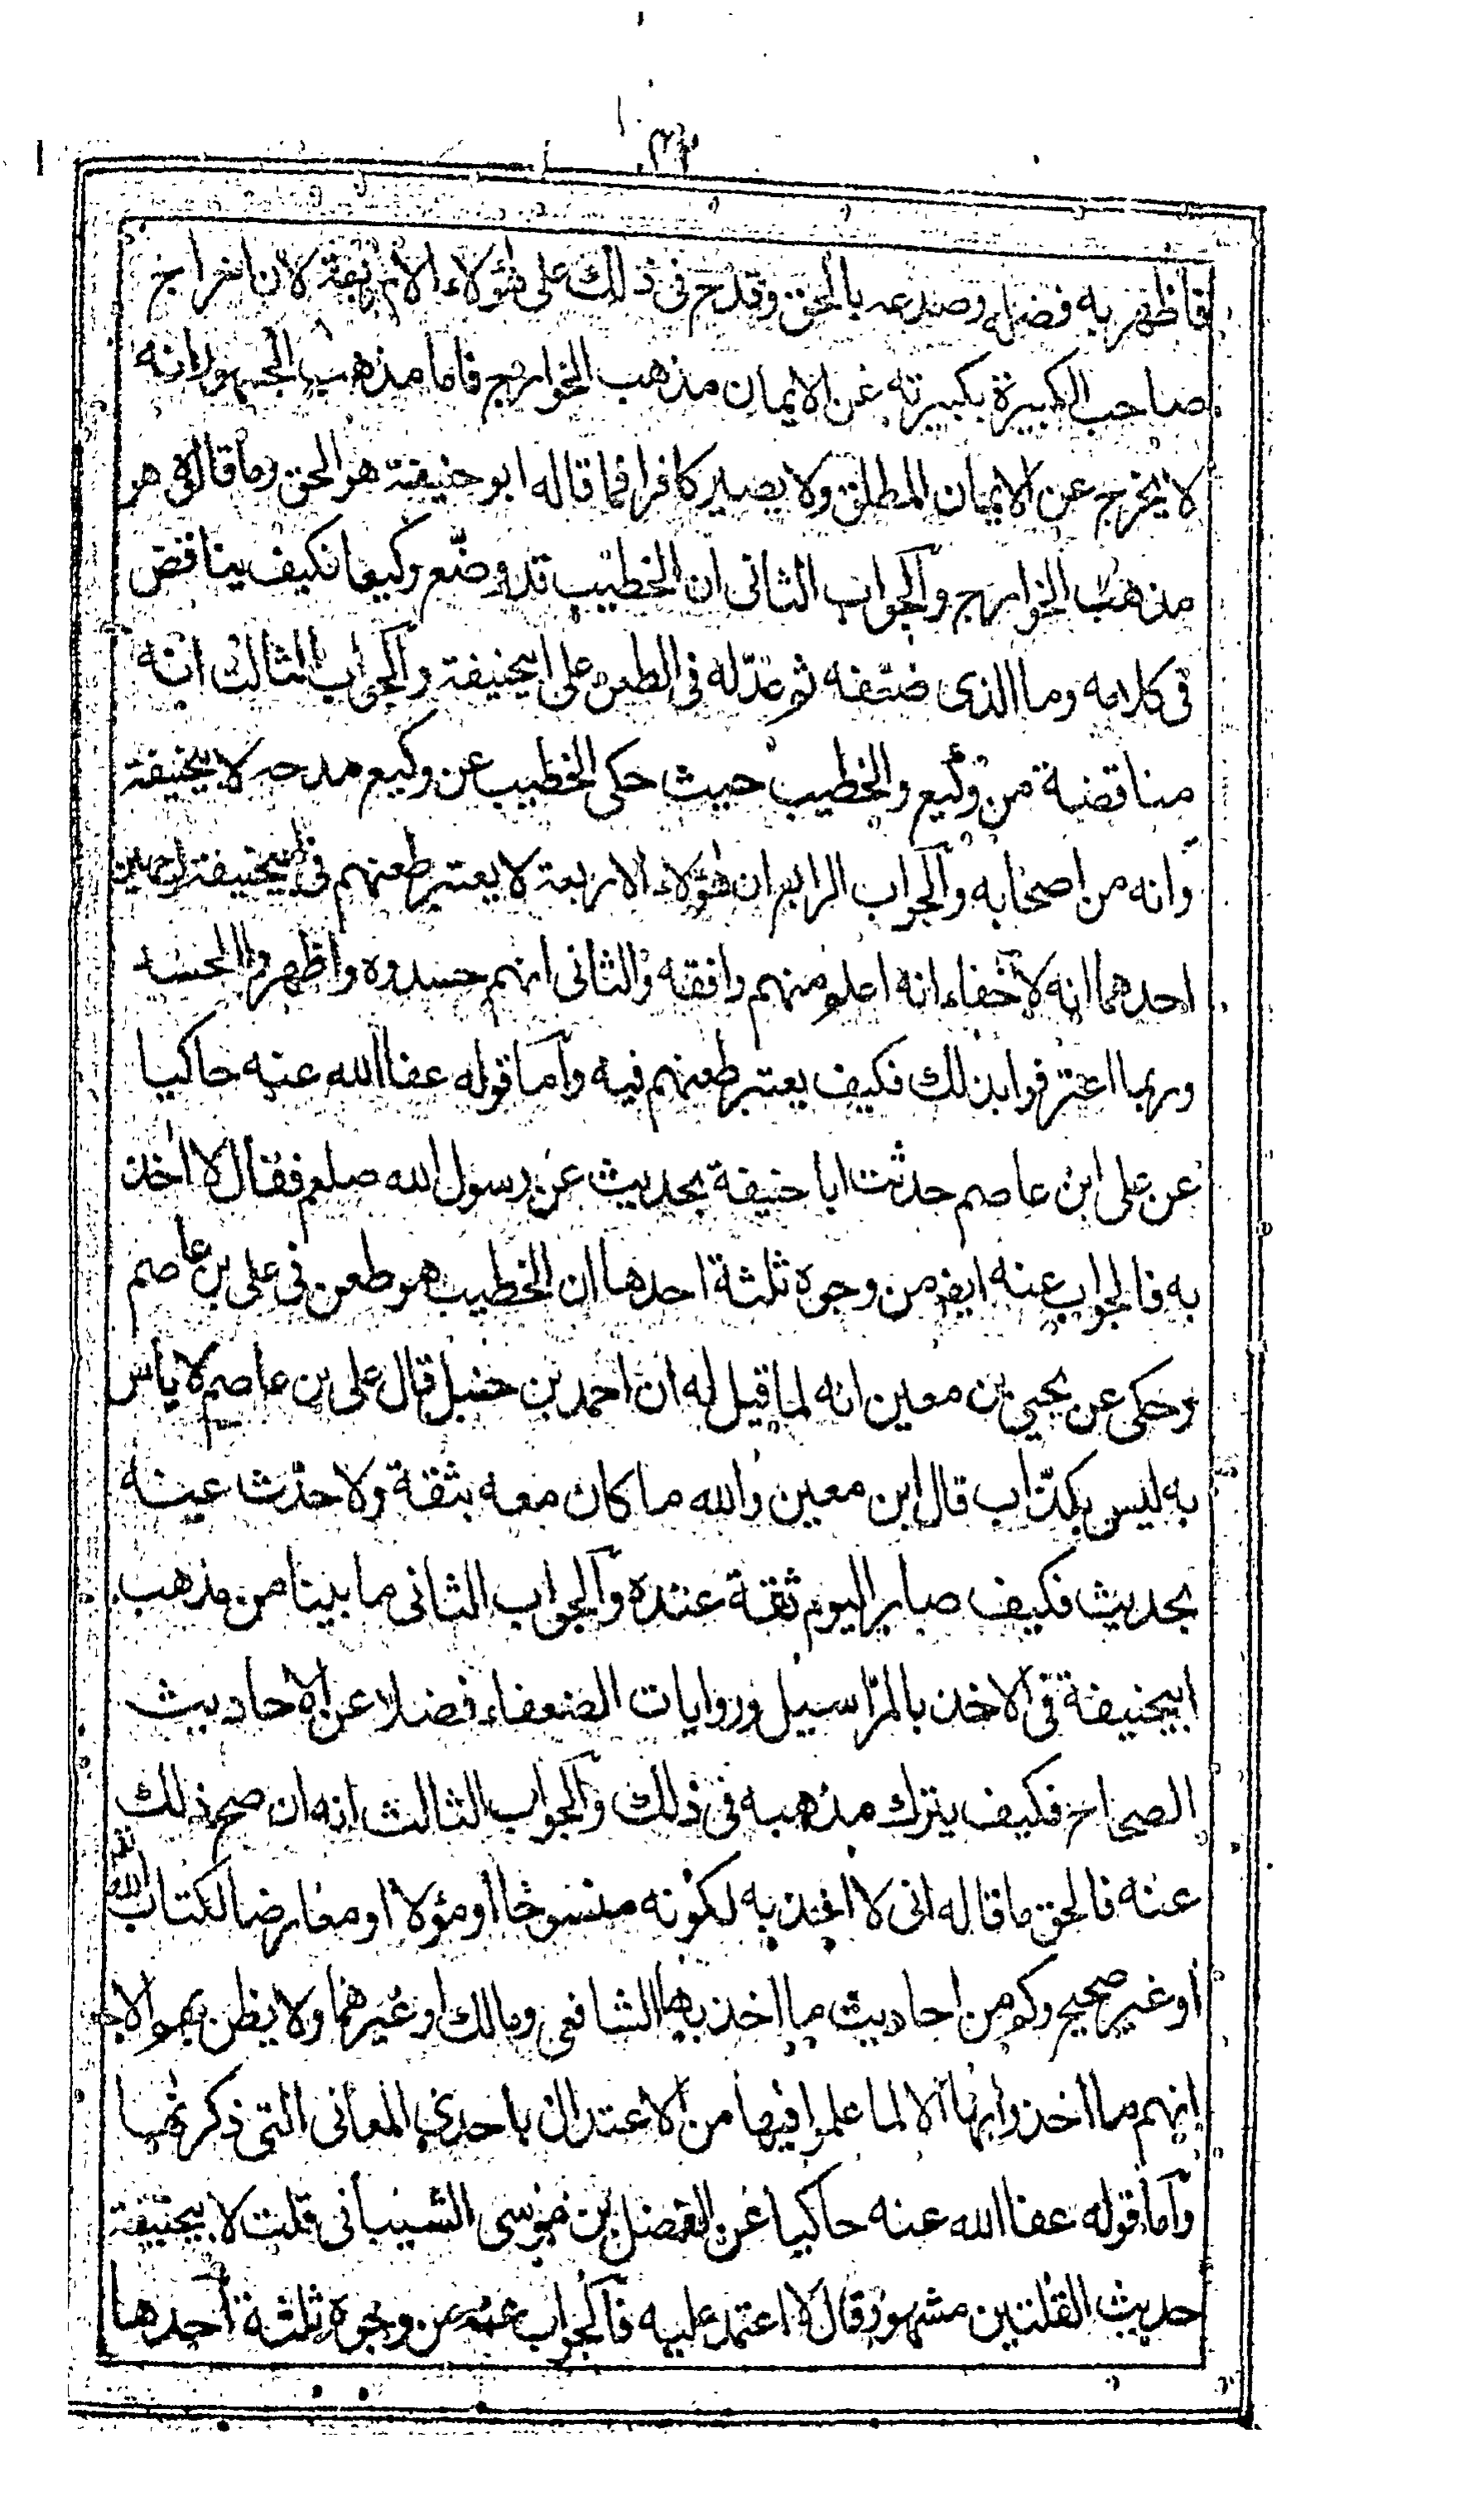 فاظهر به فضله وصدعه بالحق وقدح في ذلك على هؤلاء الاربعة لان اخراج
صاحب الكبيرة بكبيرته عن الايمان مذهب الخوارج فاما مذهب الجمهور انه
لا يخرج عن الايمان المطلق ولا يصير كافرا فما قاله ابو حنيفة هو الحق وما قالوه هو
مذهب الخوارج والجواب الثاني ان الخطيب قد وضّع وكيعا فكيف يناقض
في كلامه وما الذي ضعّفه ثم عدّله في الطعن على ابيحنيفة والجواب الثالث انه
مناقضة من وكيع والخطيب حيث حكى الخطيب عن وكيع مدحه لابيحنيفة
وانه من اصحابه والجواب الرابع ان هؤلاء الاربعة لا يعتبر طعنهم في ابيحنيفة لوجهين
احدهما انه لا خفاء انه اعلم منهم وافقه والثاني انهم حسدوه واظهروا الحسد
وربما اعترفوا بذلك فكيف يعتبر طعنهم فيه واما قوله عفا الله عنه حاكيا
عن على ابن عاصم حدثت ابا حنيفة بحديث عن رسول الله صلعم فقال لا اخذ
به فالجواب عنه ايضا من وجوه ثلثة احدها ان الخطيب هو طعن في على بن عاصم
وحكى عن يحيى بن معين انه لما قيل له ان احمد بن حنبل قال على بن عاصم لا باس
به ليس بكذّاب قال ابن معين والله ما كان معه بثقة ولا حدّث عنه
بحديث فكيف صار اليوم ثقة عنده والجواب الثاني ما بينا من مذهب
ابيحنيفة في الاخذ بالمراسيل وروايات الضعفاء فضلا عن الاحاديث
الصحاح فكيف يترك مذهبه في ذلك والجواب الثالث انه ان صح ذلك
عنه فالحق ما قاله اني لا اخذ به لكونه منسوخا او مؤلا او معارضا لكتاب الله
او غير صحيح وكم من احاديث ما اخذ بها الشافعي ومالك او غيرهما ولا يظن بهولا
انهم ما اخذوا بها الا لما علموا فيها من الاعتدال باحدى المعاني التي ذكرتها
واما قوله عفا الله عنه حاكيا عن الفضل بن موسى الشيباني قلت لابيحنيفة
حديث القلتين مشهور قال لا اعتمد عليه فالجواب عنه من وجوه ثلثة احدها